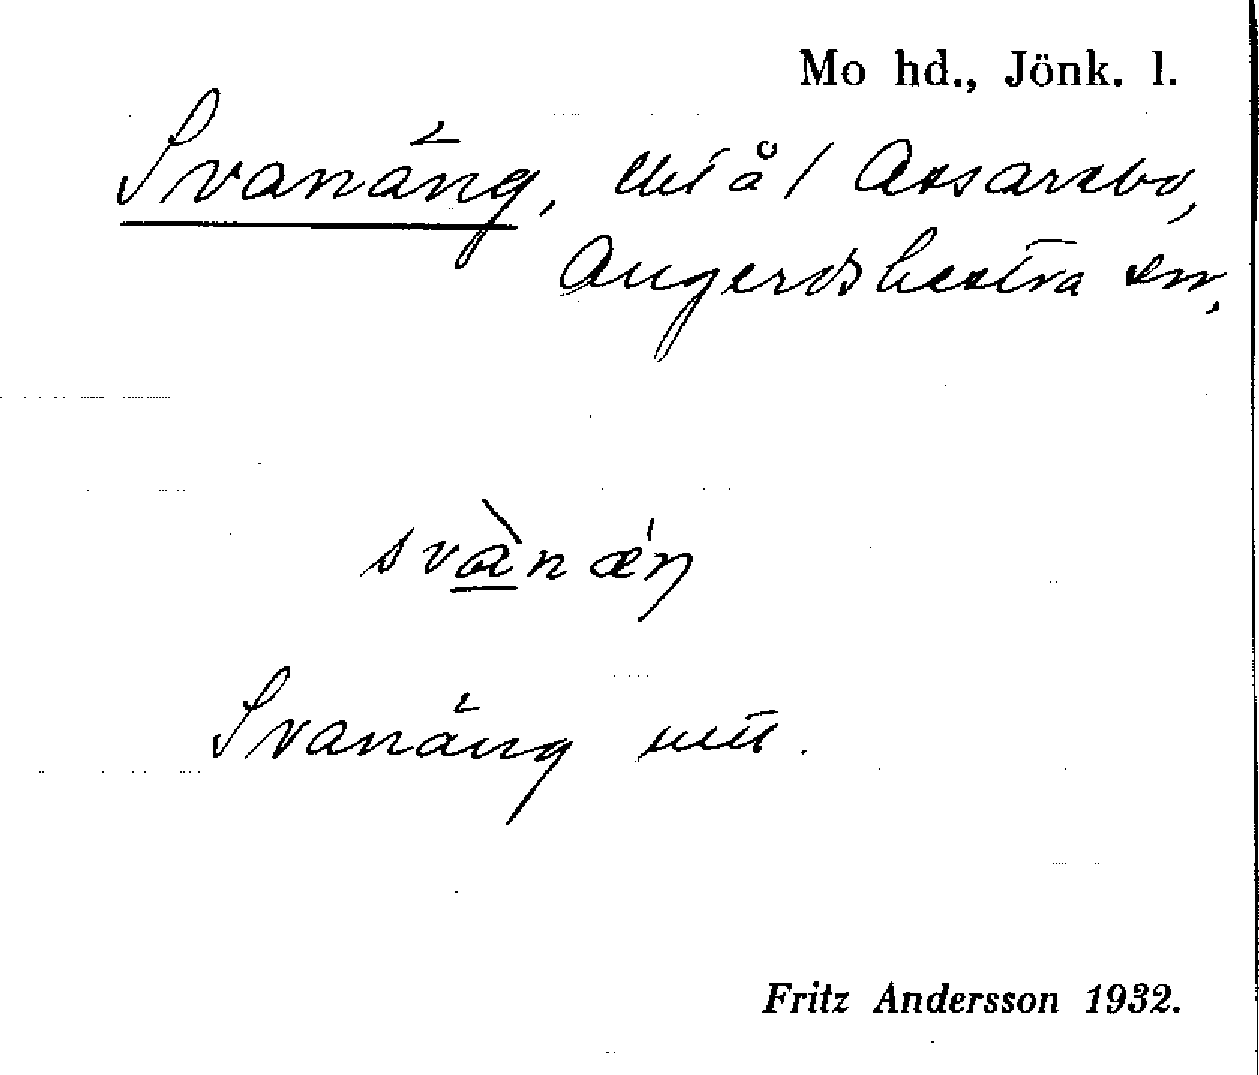 Mo hd., Jönk. l.
Svanäng, å 1 Assarsbo,
Angerdshestra sn,
svànǽŋ
Svanäng utt.
Fritz Andersson 1932.